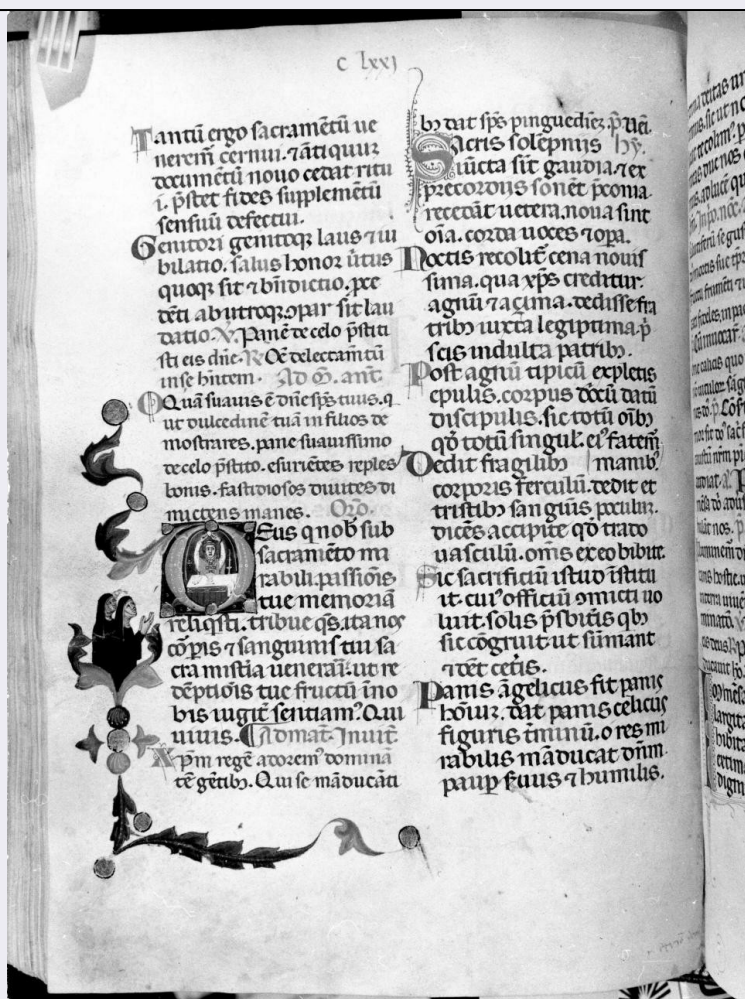 C lxxj
Tantū ergo sacramētū ue
neremˀ cernui. ⁊ ātiquuꝫ
documētū nouo cedat ritu
i. p̄stet fides supplemētū
sensuū defectui.
Genitori genitoqꝫ laus ⁊ iu
bilatio. salus honor ūtus
quoqꝫ sit ⁊ bn̄dictio. ꝓce
dēti ab utroqꝫ ꝯpar sit lau
datio. V. Panē de celo p̄stiti
sti eis dn̄e. R. Oē delectamtū
in se hn̄tem. Ad M̄. ant̄.
O Quā suauis ē dn̄e sp̄s tuus. q
ut dulcedinē tuā in filios de
mostrares. pane suauissimo
de celo p̄stito. esuriētes reples
bonis. fastidiosos diuites di
mictens inanes. Or̄o.
Deus q nob̄ sub
sacramēto mi
rabili. passiōis
tue memoriā
reliq̄sti. tribue q̄s. ita nos
cōꝑis ⁊ sanguinis tui sa
cra mistia uenerari. ut re
dēptiōis tue fructū ī no
bis iugit̄ sentiamˀ. Qui
uiuis. Ad mat̄. Inuit̄
Xp̄m regē adoremˀ domina
tē gētibꝫ. Qui se māducāti
bꝫ dat sp̄s pinguedieꝫ. p̄. Ueī.
Sacris solēpniis hȳ.
iūcta sit gaudia. ⁊ ex
precordiis sonēt p̄conia.
recedāt uetera. noua sint
oīa. corda uoces ⁊ oꝑa.
Noctis recolit̄ cena nouis
sima. qua xp̄s creditur.
agnū ⁊ açima. dedisse fra
tribꝫ iuxta legiptima. p̄
scis indulta patribꝫ.
Post agnū tipicū expletis
epulis. corpus dn̄icū datū
discipulis. sic totū oībꝫ
qō totū singul. eiˀ fatemˀ
Dedit fragilibꝫ manibꝫ
corporis ferculū. dedit et
tristibꝫ sanguīs poculuꝫ.
dicēs accipite qō trado
uasculū. om̄s ex eo bibite.
Sic sacrificiū istud īstitu
it. cuiˀ officiū ꝯmicti uo
luit. solis p̄sbit̄is qbꝫ
sic cōgruit. ut sumant
⁊ dēt cet̄is.
Panis āgelicus fit panis
hoīuꝫ. dat panis celicus
figuris t̄minū. o res mi
rabilis māducat dn̄m.
paup̄ s̄uus ⁊ humilis.